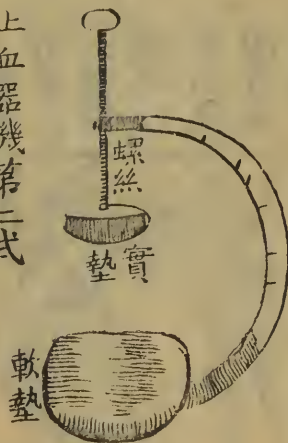 止血器機第二式
螺絲
實墊
軟墊